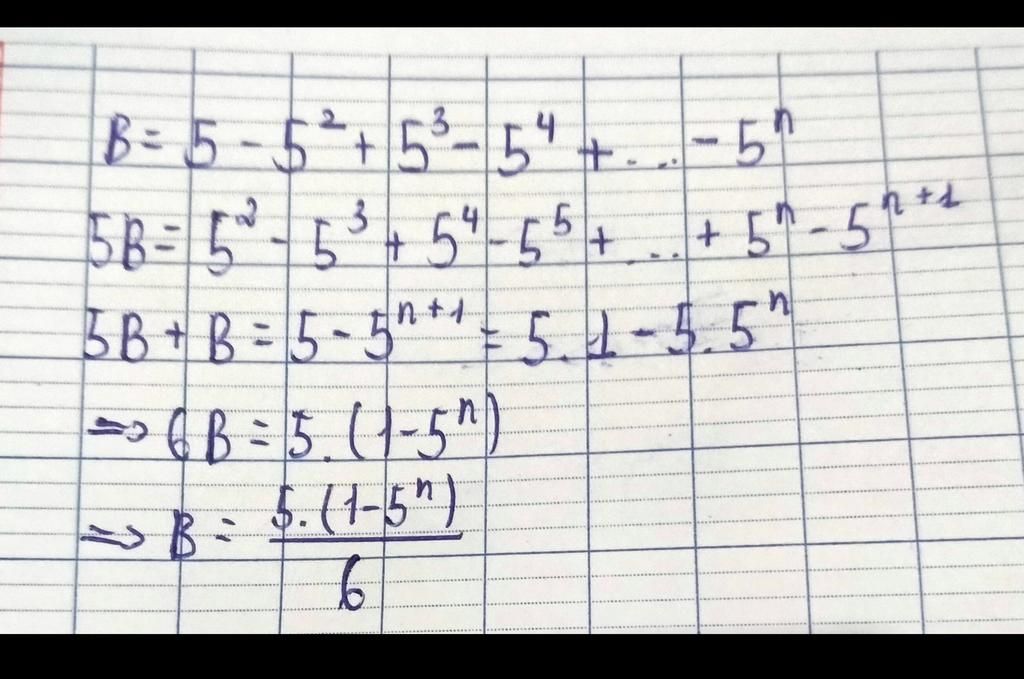 B = 5 - 5² + 5³ - 5⁴ + ... - 5ⁿ
5B = 5² - 5³ + 5⁴ - 5⁵ + ... + 5ⁿ - 5ⁿ⁺¹
5B + B = 5 - 5ⁿ⁺¹ = 5.1 - 5.5ⁿ
⇒ 6B = 5.(1-5ⁿ)
⇒ B = 5.(1-5ⁿ)
6